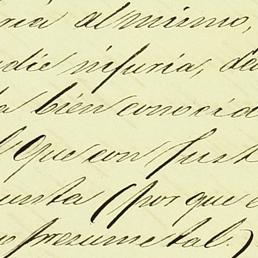 ria al mismo,
die injuria, de
la bien conocid
l que con just
unta (por que e
o presume tal.)